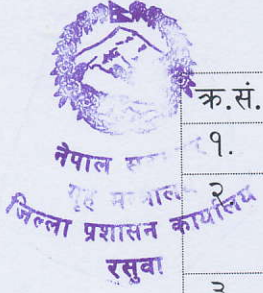 क्र.सं.
१.
नेपाल सरकार
गृह मन्त्रालय
२.
जिल्ला प्रशासन कार्यालय
रसुवा
३